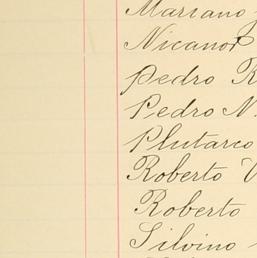 Mariano
Nicanor
Pedro R
Pedro N.
Plutarco
Roberto V
Roberto
Silvino